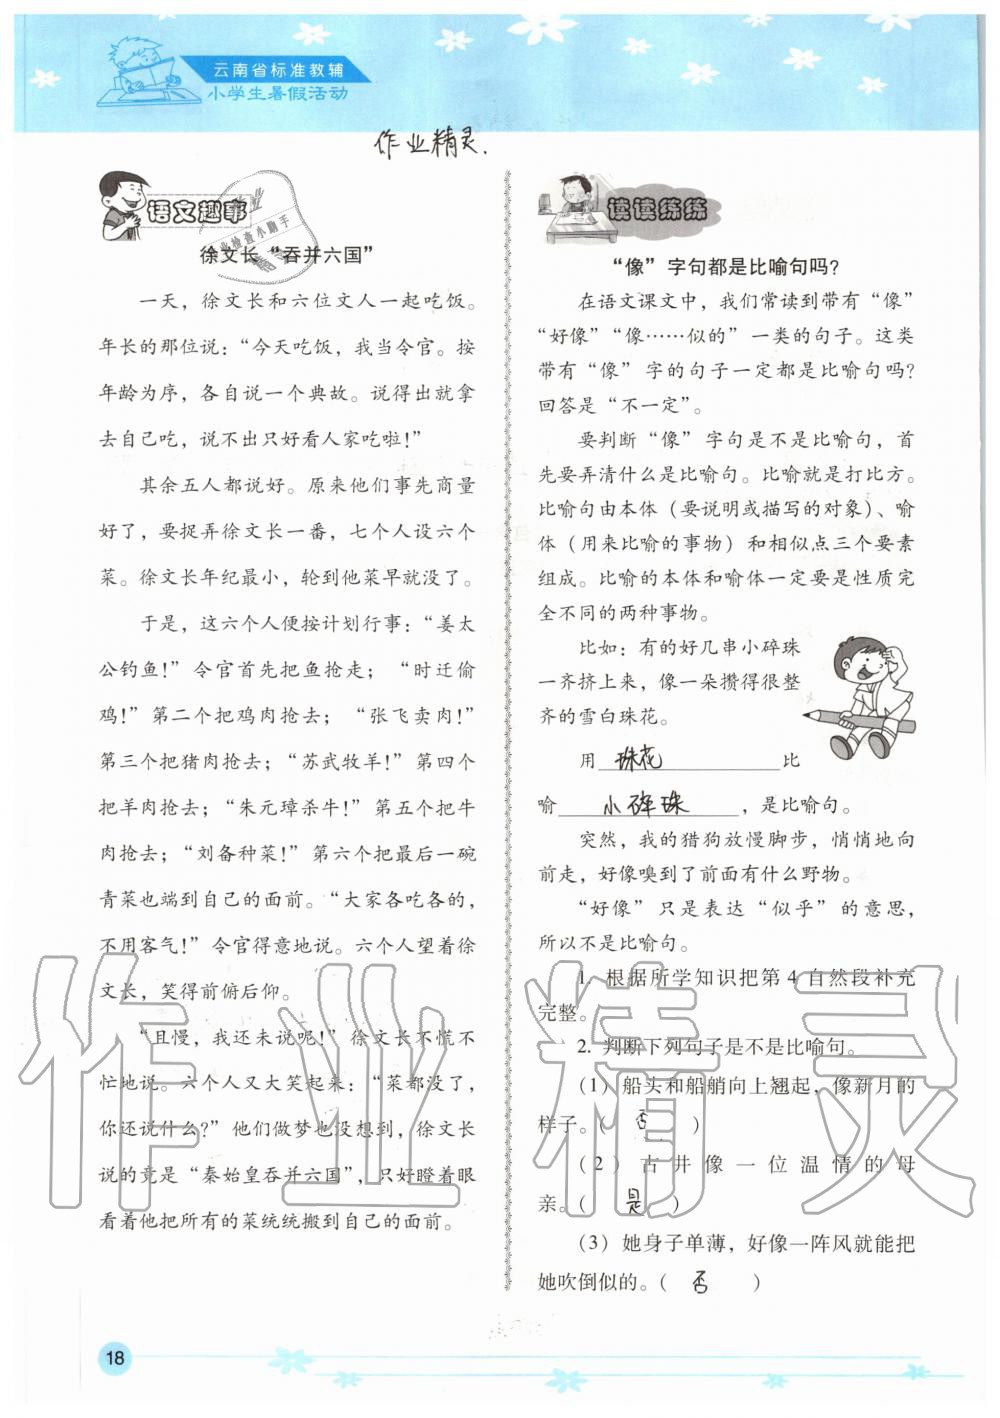 云南省标准教辅
小学生暑假活动
作业精灵.
语文趣事
徐文长“吞并六国”
一天，徐文长和六位文人一起吃饭。
年长的那位说：“今天吃饭，我当令官。按
年龄为序，各自说一个典故。说得出就拿
去自己吃，说不出只好看人家吃啦！”
其余五人都说好。原来他们事先商量
好了，要捉弄徐文长一番，七个人设六个
菜。徐文长年纪最小，轮到他菜早就没了。
于是，这六个人便按计划行事：“姜太
公钓鱼！”令官首先把鱼抢走；“时迁偷
鸡！”第二个把鸡肉抢去；“张飞卖肉！”
第三个把猪肉抢去；“苏武牧羊！”第四个
把羊肉抢去；“朱元璋杀牛！”第五个把牛
肉抢去；“刘备种菜！”第六个把最后一碗
青菜也端到自己的面前。“大家各吃各的，
不用客气！”令官得意地说。六个人望着徐
文长，笑得前俯后仰。
“且慢，我还未说呢！”徐文长不慌不
忙地说。六个人又大笑起来：“菜都没了，
你还说什么？”他们做梦也没想到，徐文长
说的竟是“秦始皇吞并六国”，只好瞪着眼
看着他把所有的菜统统搬到自己的面前。
读读练练
“像”字句都是比喻句吗？
在语文课文中，我们常读到带有“像”
“好像”“像……似的”一类的句子。这类
带有“像”字的句子一定都是比喻句吗？
回答是“不一定”。
要判断“像”字句是不是比喻句，首
先要弄清什么是比喻句。比喻就是打比方。
比喻句由本体（要说明或描写的对象）、喻
体（用来比喻的事物）和相似点三个要素
组成。比喻的本体和喻体一定要是性质完
全不同的两种事物。
比如：有的好几串小碎珠
一齐挤上来，像一朵攒得很整
齐的雪白珠花。
用 珠花 比
喻 小碎珠 ，是比喻句。
突然，我的猎狗放慢脚步，悄悄地向
前走，好像嗅到了前面有什么野物。
“好像”只是表达“似乎”的意思，
所以不是比喻句。
1. 根据所学知识把第 4 自然段补充
完整。
2. 判断下列句子是不是比喻句。
（1）船头和船艄向上翘起，像新月的
样子。（ 否 ）
（2）古井像一位温情的母
亲。（ 是 ）
（3）她身子单薄，好像一阵风就能把
她吹倒似的。（ 否 ）
作业精灵
18